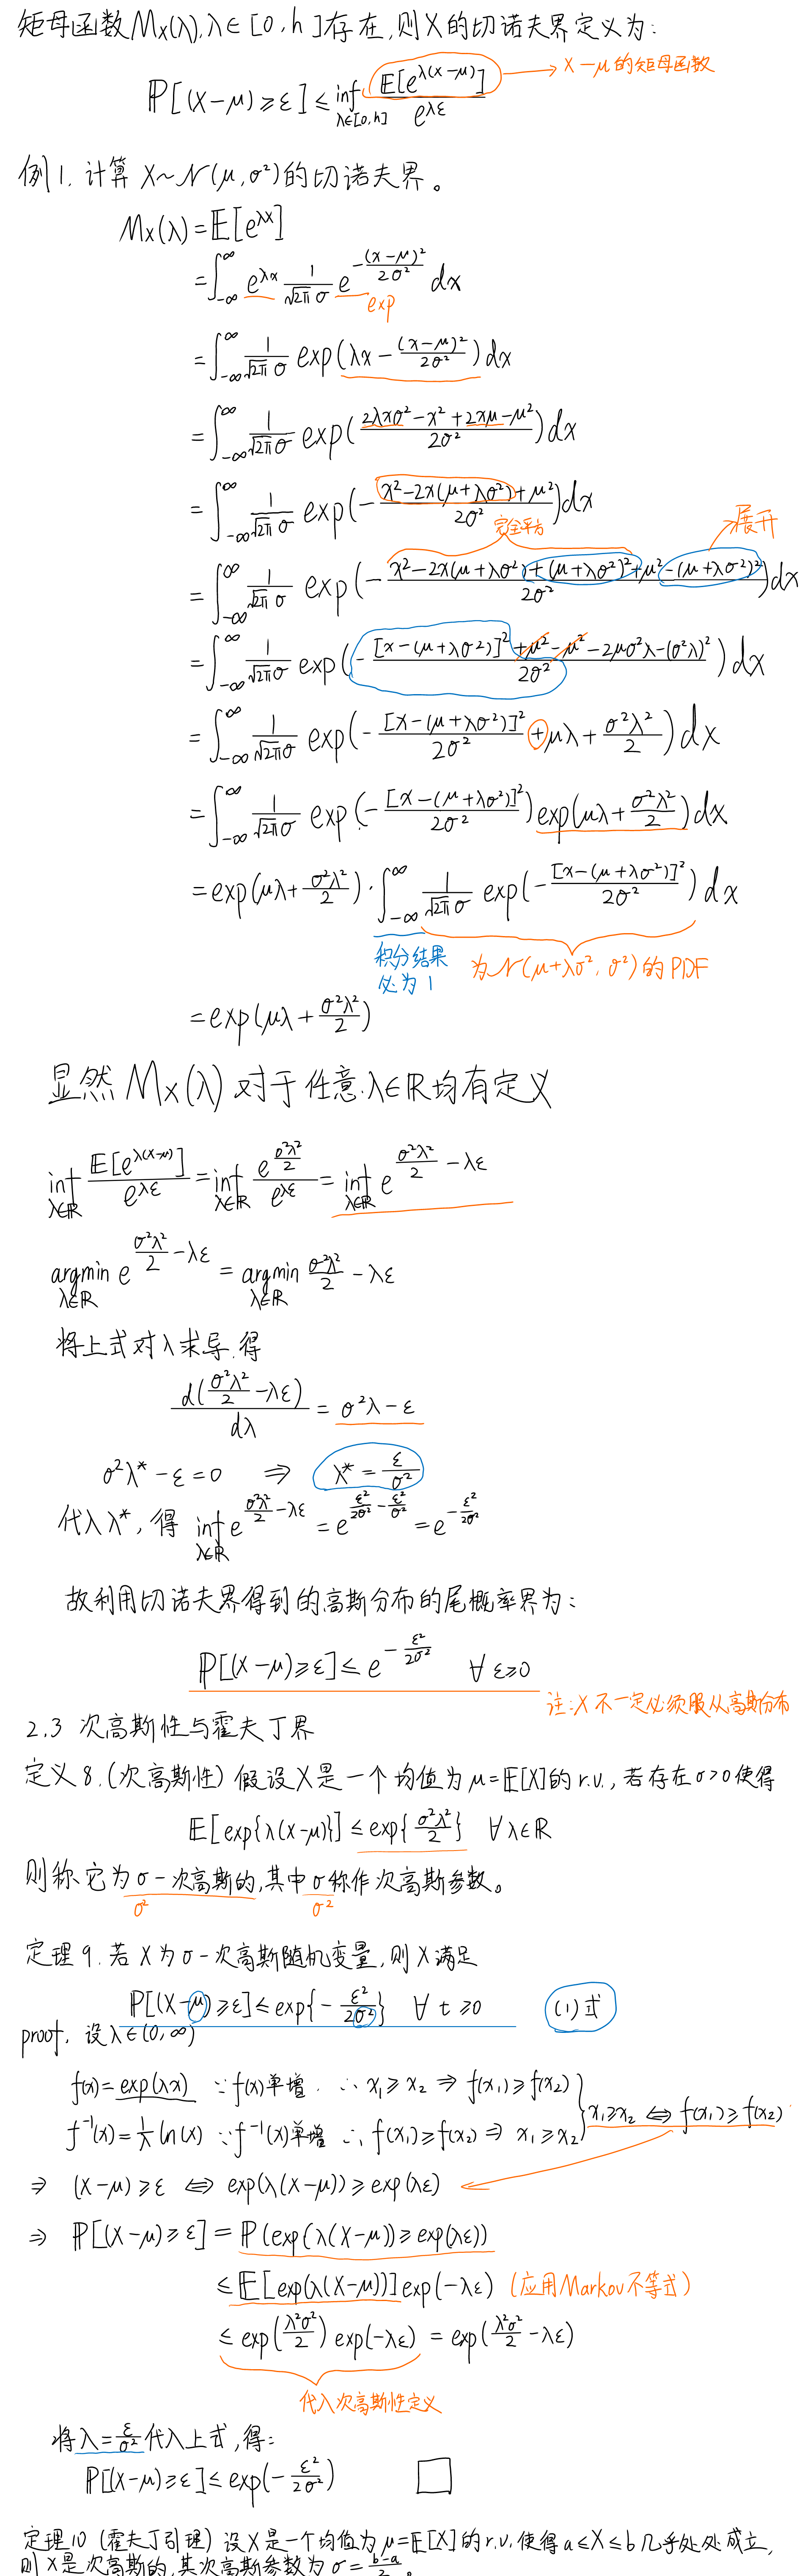 矩母函数 M_X(λ), λ∈[0,h]存在,则X的切诺夫界定义为:
P[(X-μ)≥ε] ≤ inf_{λ∈[0,h]} E[e^{λ(X-μ)}] / e^{λε} → X-μ的矩母函数
例1. 计算 X~N(μ,σ²)的切诺夫界。
M_X(λ) = E[e^{λX}]
= ∫_{-∞}^{∞} e^{λx} 1/(√2π σ) e^{-(x-μ)²/2σ²} dx
exp
= ∫_{-∞}^{∞} 1/(√2π σ) exp(λx - (x-μ)²/2σ²) dx
= ∫_{-∞}^{∞} 1/(√2π σ) exp((2λxσ² - x² + 2xμ - μ²)/2σ²) dx
= ∫_{-∞}^{∞} 1/(√2π σ) exp(-(x² - 2x(μ+λσ²) + μ²)/2σ²) dx
完全平方 展开
= ∫_{-∞}^{∞} 1/(√2π σ) exp(-(x² - 2x(μ+λσ²) + (μ+λσ²)² + μ² - (μ+λσ²)²)/2σ²) dx
= ∫_{-∞}^{∞} 1/(√2π σ) exp(-([x-(μ+λσ²)]² + μ² - μ² - 2μσ²λ - (σ²λ)²)/2σ²) dx
= ∫_{-∞}^{∞} 1/(√2π σ) exp(-[x-(μ+λσ²)]²/2σ² + μλ + σ²λ²/2) dx
= ∫_{-∞}^{∞} 1/(√2π σ) exp(-[x-(μ+λσ²)]²/2σ²) exp(μλ + σ²λ²/2) dx
= exp(μλ + σ²λ²/2) · ∫_{-∞}^{∞} 1/(√2π σ) exp(-[x-(μ+λσ²)]²/2σ²) dx
积分结果必为1 为N(μ+λσ², σ²)的PDF
= exp(μλ + σ²λ²/2)
显然 M_X(λ) 对于任意λ∈R均有定义
inf_{λ∈R} E[e^{λ(X-μ)}]/e^{λε} = inf_{λ∈R} e^{σ²λ²/2}/e^{λε} = inf_{λ∈R} e^{σ²λ²/2 - λε}
argmin_{λ∈R} e^{σ²λ²/2 - λε} = argmin_{λ∈R} σ²λ²/2 - λε
将上式对λ求导,得
d(σ²λ²/2 - λε)/dλ = σ²λ - ε
σ²λ* - ε = 0 ⇒ λ* = ε/σ²
代入λ*, 得 inf_{λ∈R} e^{σ²λ²/2 - λε} = e^{ε²/2σ² - ε²/σ²} = e^{-ε²/2σ²}
故利用切诺夫界得到的高斯分布的尾概率界为:
P[(X-μ)≥ε] ≤ e^{-ε²/2σ²} ∀ε≥0
注:X不一定必须服从高斯分布
2.3 次高斯性与霍夫丁界
定义8.(次高斯性) 假设X是一个均值为μ=E[X]的r.v., 若存在σ>0使得
E[exp{λ(X-μ)}] ≤ exp{σ²λ²/2} ∀λ∈R
则称它为σ-次高斯的,其中σ称作次高斯参数。
σ² σ²
定理9. 若X为σ-次高斯随机变量,则X满足
P[(X-μ)≥ε] ≤ exp{-ε²/2σ²} ∀t≥0 (1)式
proof. 设λ∈(0,∞)
f(x)=exp(λx) ∵f(x)单增. ∴ x₁≥x₂ ⇒ f(x₁)≥f(x₂)
f⁻¹(x)=1/λ ln(x) ∵f⁻¹(x)单增 ∴ f(x₁)≥f(x₂) ⇒ x₁≥x₂ } x₁≥x₂ ⇔ f(x₁)≥f(x₂)
⇒ (X-μ)≥ε ⇔ exp(λ(X-μ))≥exp(λε)
⇒ P[(X-μ)≥ε] = P(exp(λ(X-μ))≥exp(λε))
≤ E[exp(λ(X-μ))]exp(-λε) (应用Markov不等式)
≤ exp(λ²σ²/2) exp(-λε) = exp(λ²σ²/2 - λε)
代入次高斯性定义
将λ=ε/σ²代入上式,得:
P[(X-μ)≥ε] ≤ exp(-ε²/2σ²) □
定理10 (霍夫丁引理) 设X是一个均值为μ=E[X]的r.v.使得a≤X≤b几乎处处成立,
则X是次高斯的,其次高斯参数为σ=(b-a)/2。